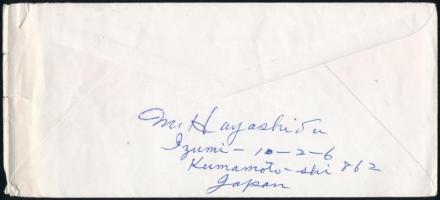 M. Hayashida
Izumi - 10-2-6
Kumamoto-shi 862
Japan